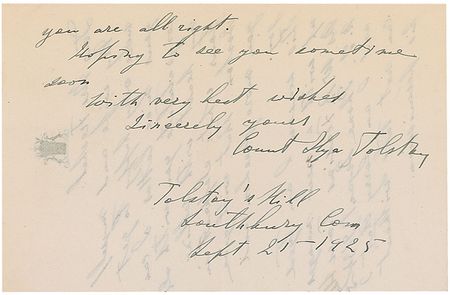 you are all right.
Hoping to see you sometime
soon
With very best wishes
Sincerely yours
Count Ilya Tolstoy
Tolstoy's Hill
Southbury Conn
Sept 21-1925